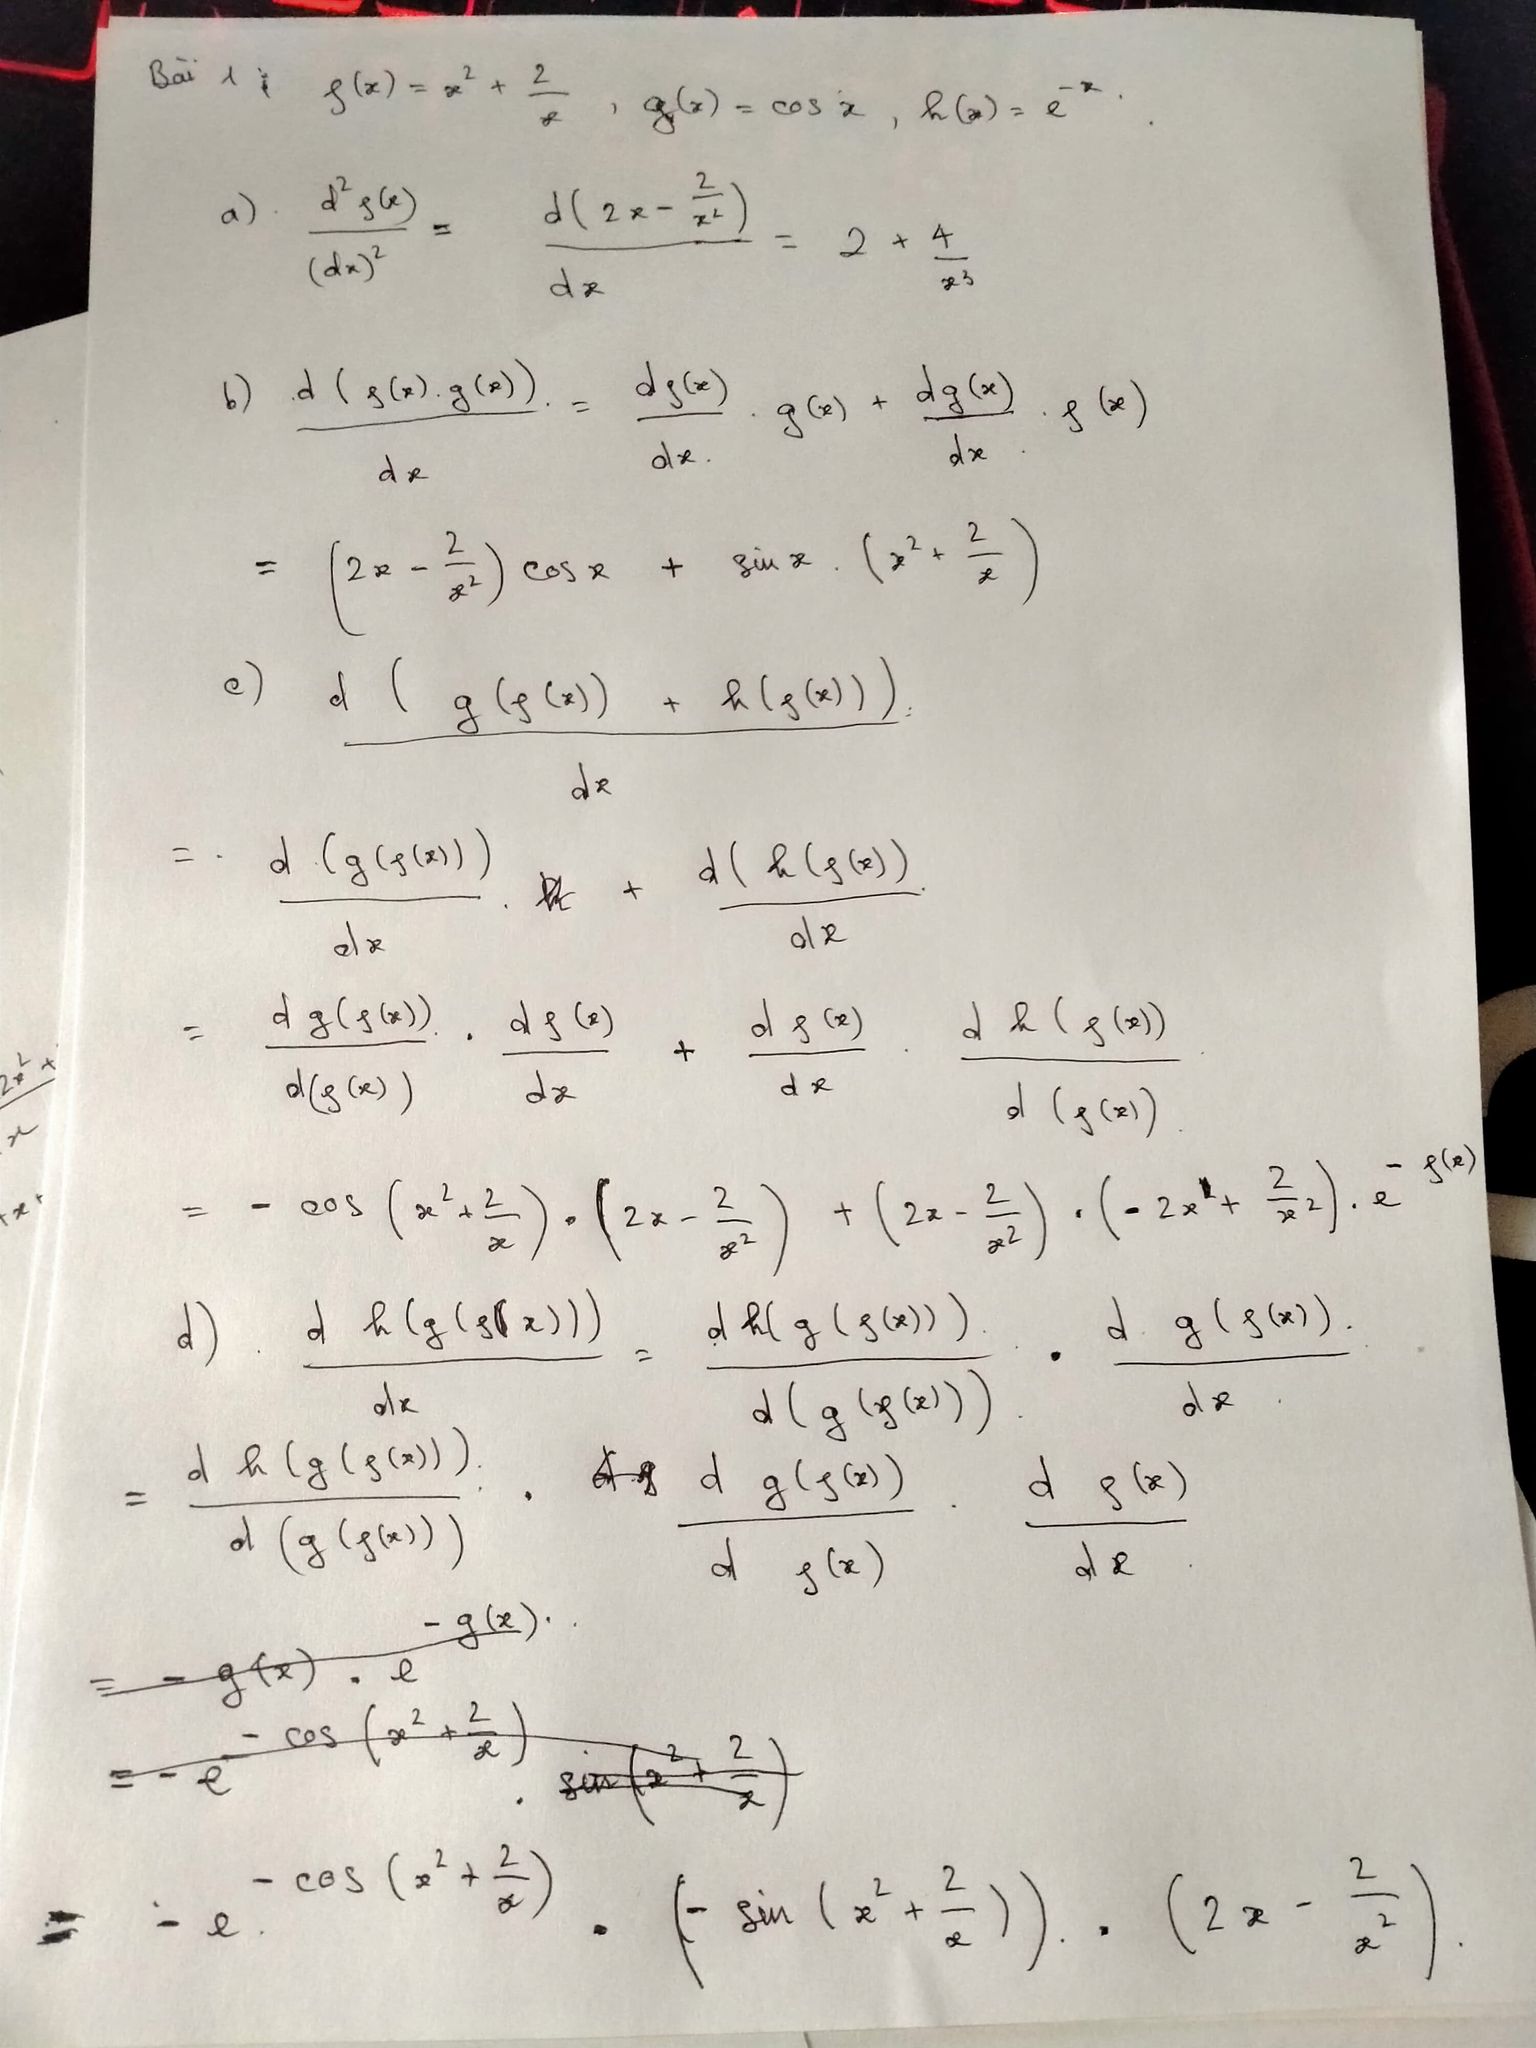 Bài 1: f(x) = x² + 2/x , g(x) = cos x , h(x) = e^{-x}.
a) d²f(x)/(dx)² = d(2x - 2/x²)/dx = 2 + 4/x³
b) d(f(x).g(x))/dx = df(x)/dx . g(x) + dg(x)/dx . f(x)
= (2x - 2/x²) cos x + sin x . (x² + 2/x)
c) d(g(f(x)) + h(f(x)))/dx
= d(g(f(x)))/dx . + d(h(f(x))/dx
= dg(f(x))/d(f(x)) . df(x)/dx + df(x)/dx . dh(f(x))/d(f(x))
= - cos(x² + 2/x) . (2x - 2/x²) + (2x - 2/x²) . (-2x + 2/x²) . e^{-f(x)}
d) dh(g(f(x)))/dx = dh(g(f(x)))/d(g(f(x))) . dg(f(x))/dx
= dh(g(f(x)))/d(g(f(x))) . dg(f(x))/df(x) . df(x)/dx
= - g(x) . e^{-g(x)}
= - e^{-cos(x² + 2/x)} . sin(x² + 2/x)
= - e^{-cos(x² + 2/x)} . (- sin(x² + 2/x)) . (2x - 2/x²).
2x² +
x
+x+